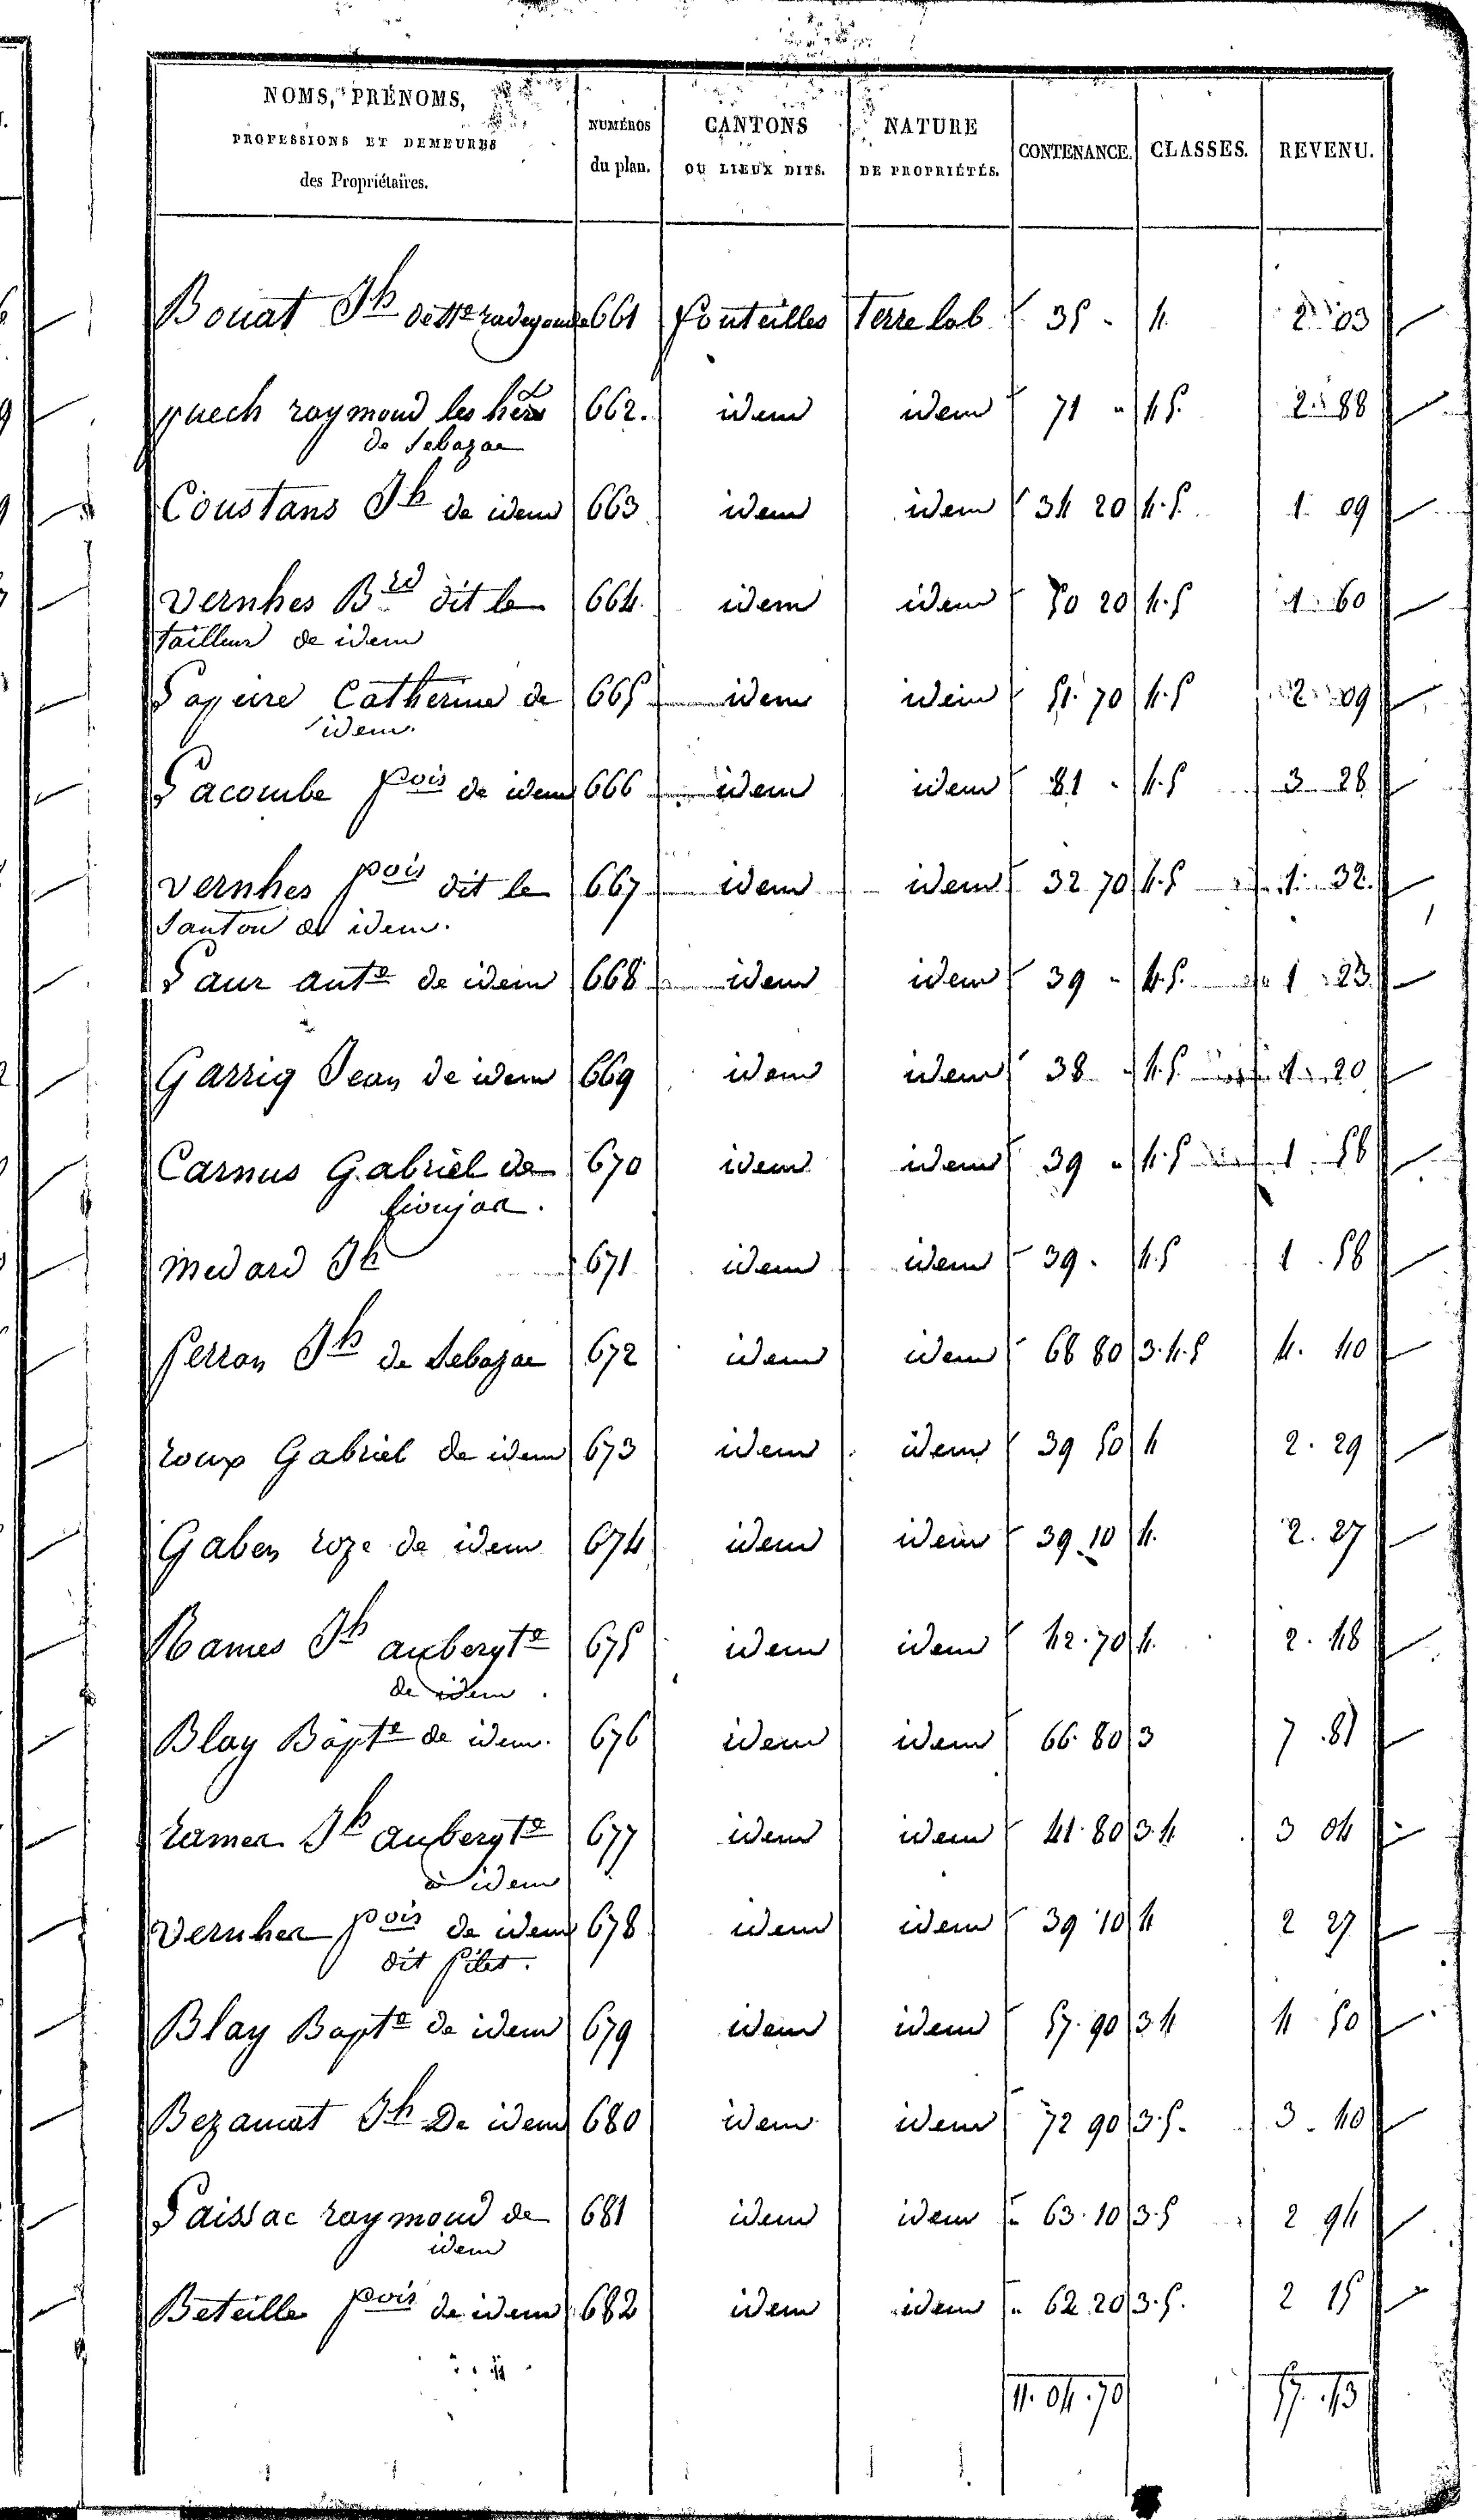 NOMS, PRÉNOMS,
PROFESSIONS ET DEMEURES
des Propriétaires.
NUMÉROS
du plan.
CANTONS
OU LIEUX DITS.
NATURE
DE PROPRIÉTÉS.
CONTENANCE.
CLASSES.
REVENU.
Bouat Jh de Ste radegonde 661 fonteilles Terre lab 35 - 4. 2 03
puech raymond les hers 662. idem idem 71 " 4 5. 2. 88
de Sebazac
Coustans Jh de idem 663 idem idem 34 20 4.5. 1 09
Vernhes Brd dit le 664 idem idem 50 20 4.5 1 60
tailleur de idem
Catherine de 665 idem idem 51. 70 4.5 2 09
idem.
Lacombe fois de idem 666 idem idem 81 - 4.5 3 28
Vernhes fois dit le 667 idem idem 32 70 4.5 1. 32.
Santou de idem.
Laur ante de idem 668 idem idem 39 - 4.5. 1 23
Garrig Jean de idem 669 idem idem 38 - 4.5. 1. 20
Carnus Gabriel de 670 idem idem 39 " 4.5 1 58
fioujac.
Medard Jh 671 idem idem 39 . 4.5 1 . 58
ferran Jh de Sebazac 672 idem idem 68 80 3.4.5 4. 40
roux Gabriel de idem 673 idem idem 39 50 4 2. 29
Gaben roze de idem 674 idem idem 39.10 4. 2. 27
Rames Jh aubergte 675 idem idem 42.70 4. 2. 48
de idem.
Blay Bapte de idem. 676 idem idem 66.80 3 7 .81
rames Jh aubergte 677 idem idem 41.80 3.4 3 04
à idem
Vernhes fois de idem 678 idem idem 39 10 4 2 27
dit
Blay Bapte de idem 679 idem idem 57.90 3.4 4 50
Bezamat Jh De idem 680 idem idem 72 90 3.5. 3 . 40
Laissac raymond de 681 idem idem " 63.10 3.5 2 94
idem
Beteille fois de idem 682 idem idem " 62.20 3.5. 2 15
11. 04 .70 57. 43